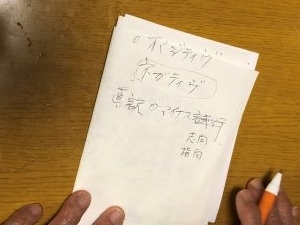 ○ポジティヴ
ネガティヴ
真説 のマイナス
志向
指向